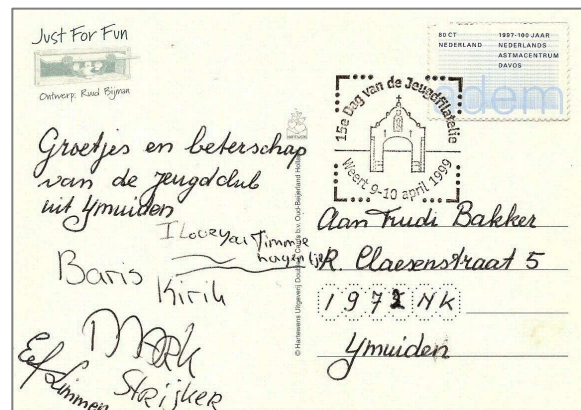 Just For Fun
Ontwerp: Ruud Bijman
80 CT
NEDERLAND
1997-100 JAAR
NEDERLANDS
ASTMACENTRUM
DAVOS
adem
15e Dag van de Jeugdfilatelie
Weert 9-10 april 1999
Groetjes en beterschap
van de jeugdclub
uit Ymuiden
I Love you Timmie
Baris
Kirik
MARK
STRIJKER
Eef Limmen
© Hartewens Uitgeverij b.v. Oud-Beijerland Holland
Aan Trudi Bakker
R. Claesenstraat 5
1972 NK
Ymuiden